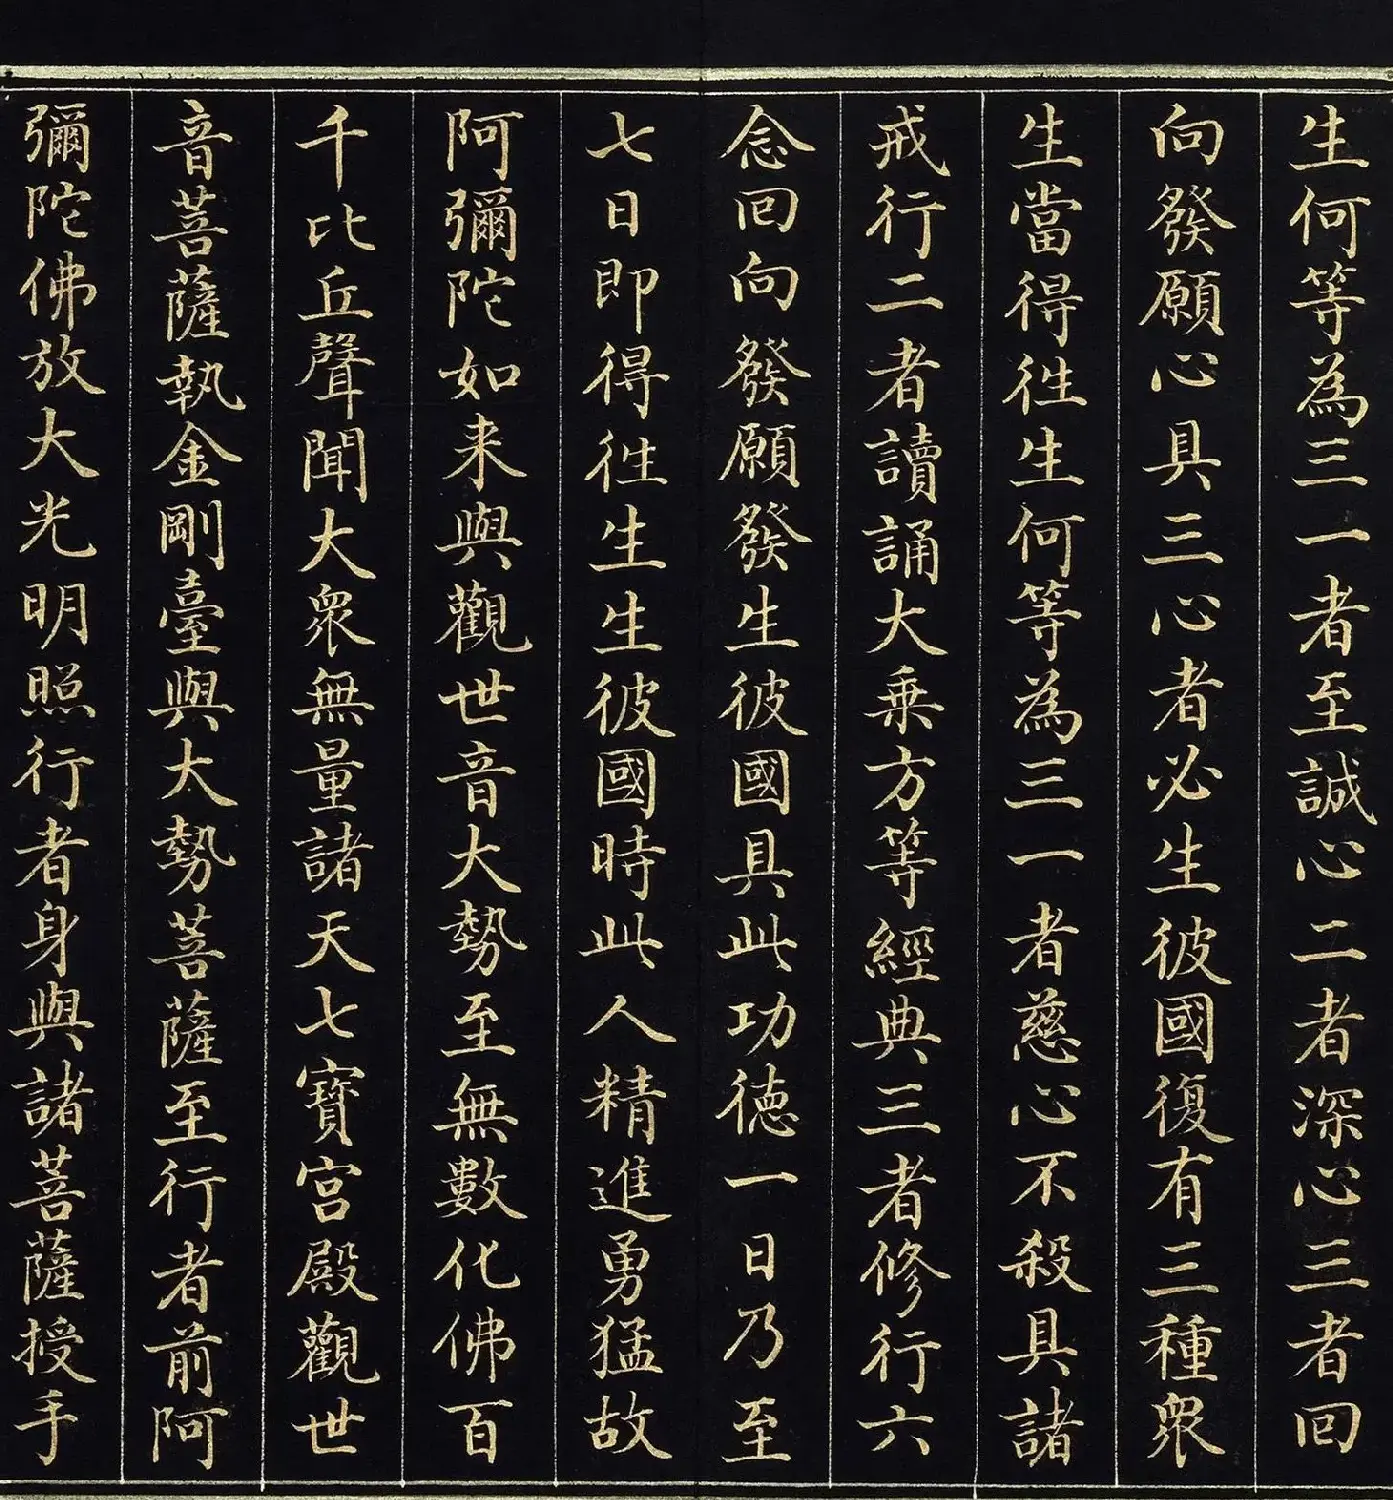 生何等為三一者至誠心二者深心三者回
向發願心具三心者必生彼國復有三種衆
生當得徃生何等為三一者慈心不殺具諸
戒行二者讀誦大乗方等經典三者修行六
念回向發願發生彼國具此功德一日乃至
七日即得徃生生彼國時此人精進勇猛故
阿彌陀如来與觀世音大勢至無數化佛百
千比丘聲聞大衆無量諸天七寶宫殿觀世
音菩薩執金剛臺與大勢菩薩至行者前阿
彌陀佛放大光明照行者身與諸菩薩授手